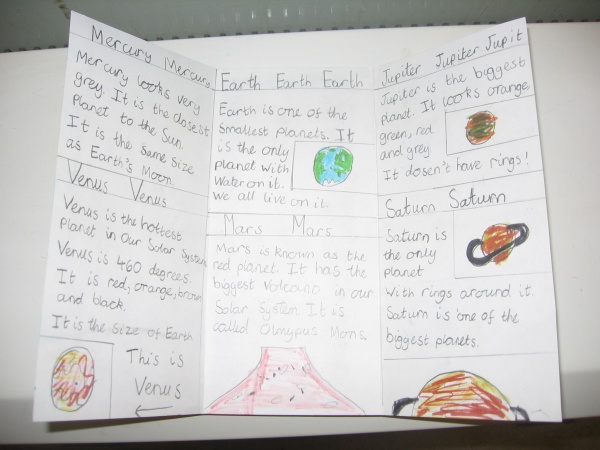 Mercury Mercury
Mercury looks very
grey. It is the closest
planet to the Sun.
It is the same size
as Earth's Moon.
Venus Venus
Venus is the hottest
Planet in Our Solar System
Venus is 460 degrees.
It is red, orange, brown
and black.
It is the size of Earth
This is
Venus
Earth Earth Earth
Earth is one of the
Smallest planets. It
is the only
planet with
Water on it.
We all live on it.
Mars Mars
Mars is known as the
red planet. It has the
biggest Volcano in our
Solar System It is
called Olmypus Mons.
Jupiter Jupiter Jupit
Jupiter is the biggest
planet. It looks orange
green, red
and grey
It dosen't have rings!
Saturn Saturn
Saturn is
the only
planet
With rings around it.
Saturn is one of the
biggest planets.